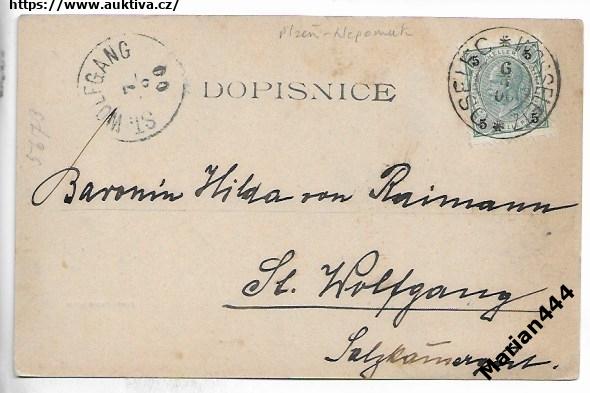 https://www.auktiva.cz/
Plzeň-Nepomuk
ST. WOLFGANG
00
DOPISNICE
5
5
5
5
6
00
5673
Baronin Hilda von Raimann
St. Wolfgang
Salzkammergut.
Marian444